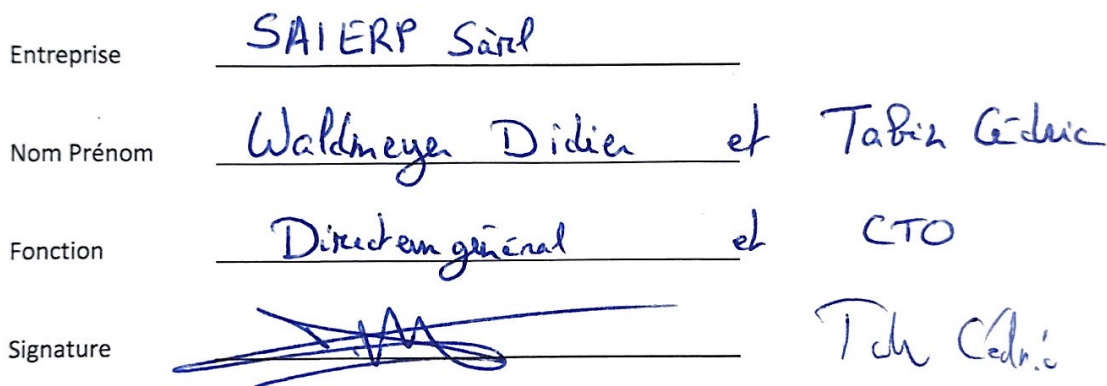 Entreprise SAIERP Sàrl
Nom Prénom Waldmeyer Didier et Tabin Cédric
Fonction Directeur général et CTO
Signature Cédric